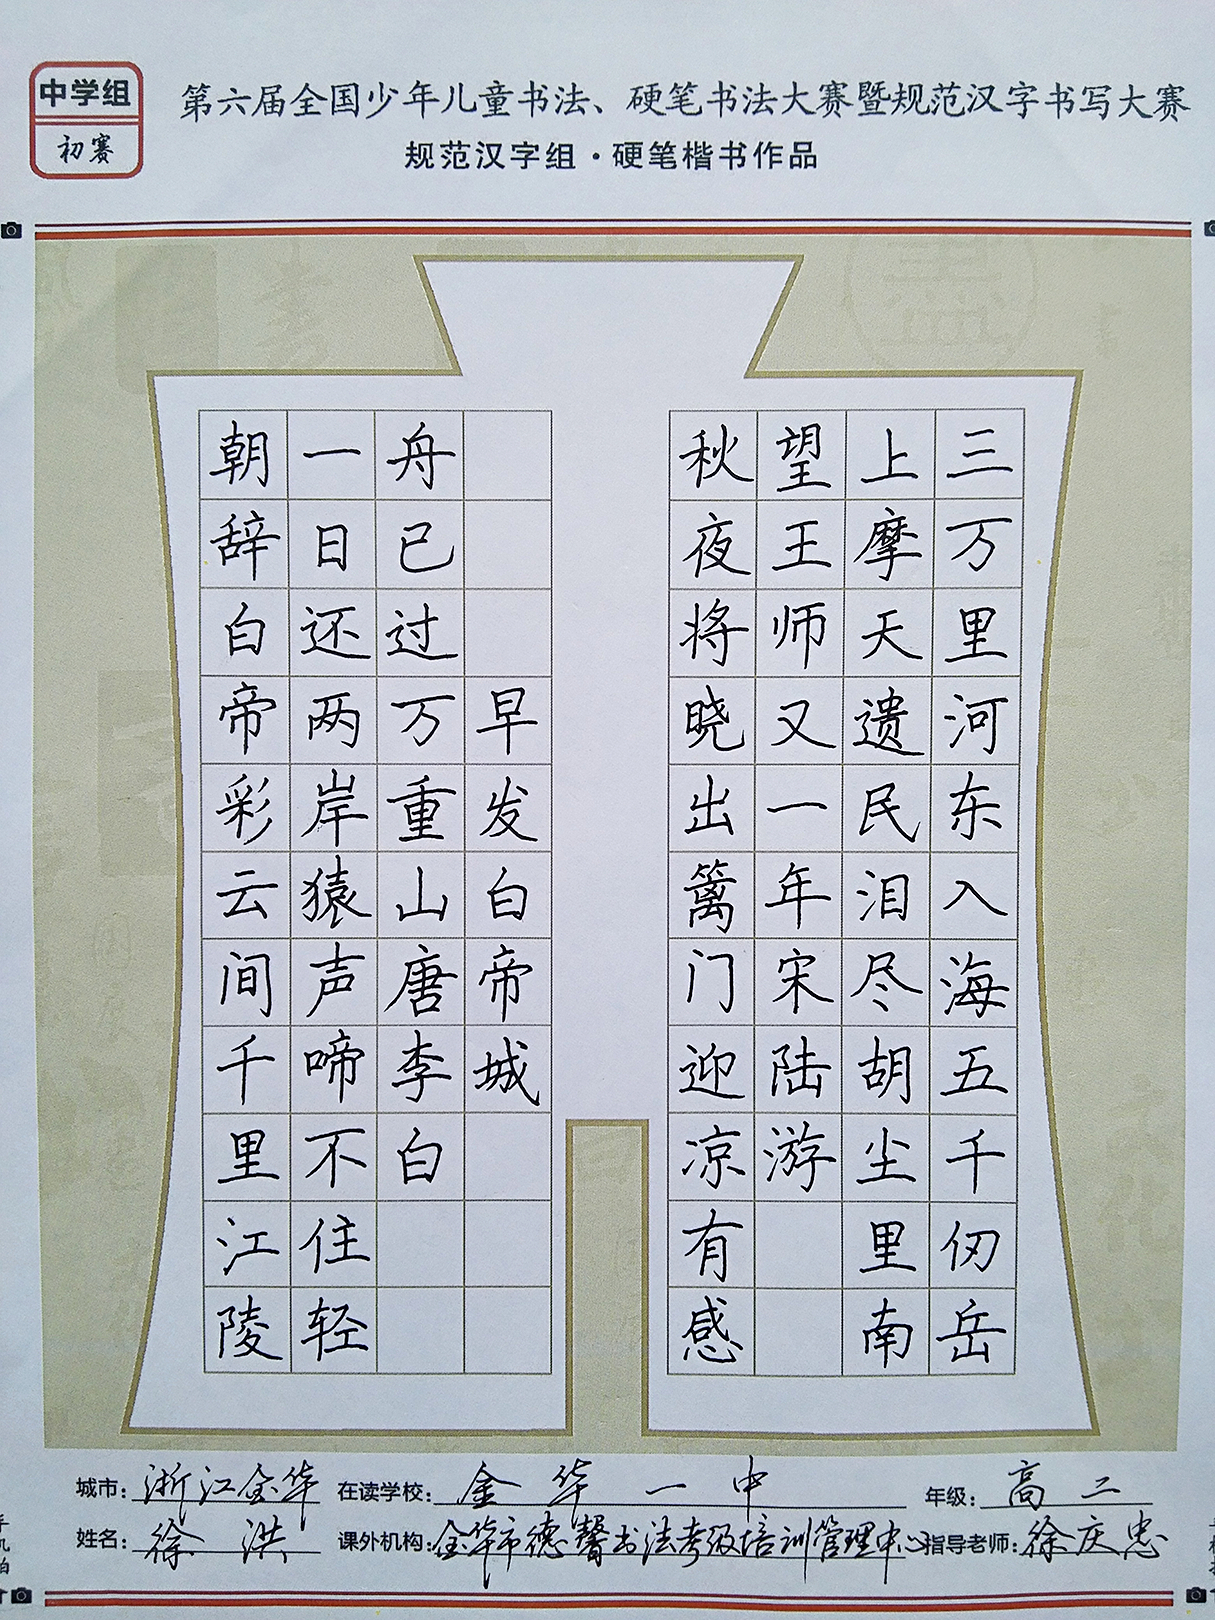 中学组
初赛
第六届全国少年儿童书法、硬笔书法大赛暨规范汉字书写大赛
规范汉字组·硬笔楷书作品
三万里河东入海五千仞岳
上摩天遗民泪尽胡尘里南
望王师又一年宋陆游
秋夜将晓出篱门迎凉有感
朝辞白帝彩云间千里江陵
一日还两岸猿声啼不住轻
舟已过万重山唐李白
早发白帝城
城市：浙江金华 在读学校：金华一中 年级：高二
姓名：徐洪 课外机构：金华市德馨书法考级培训管理中心 指导老师：徐庆忠